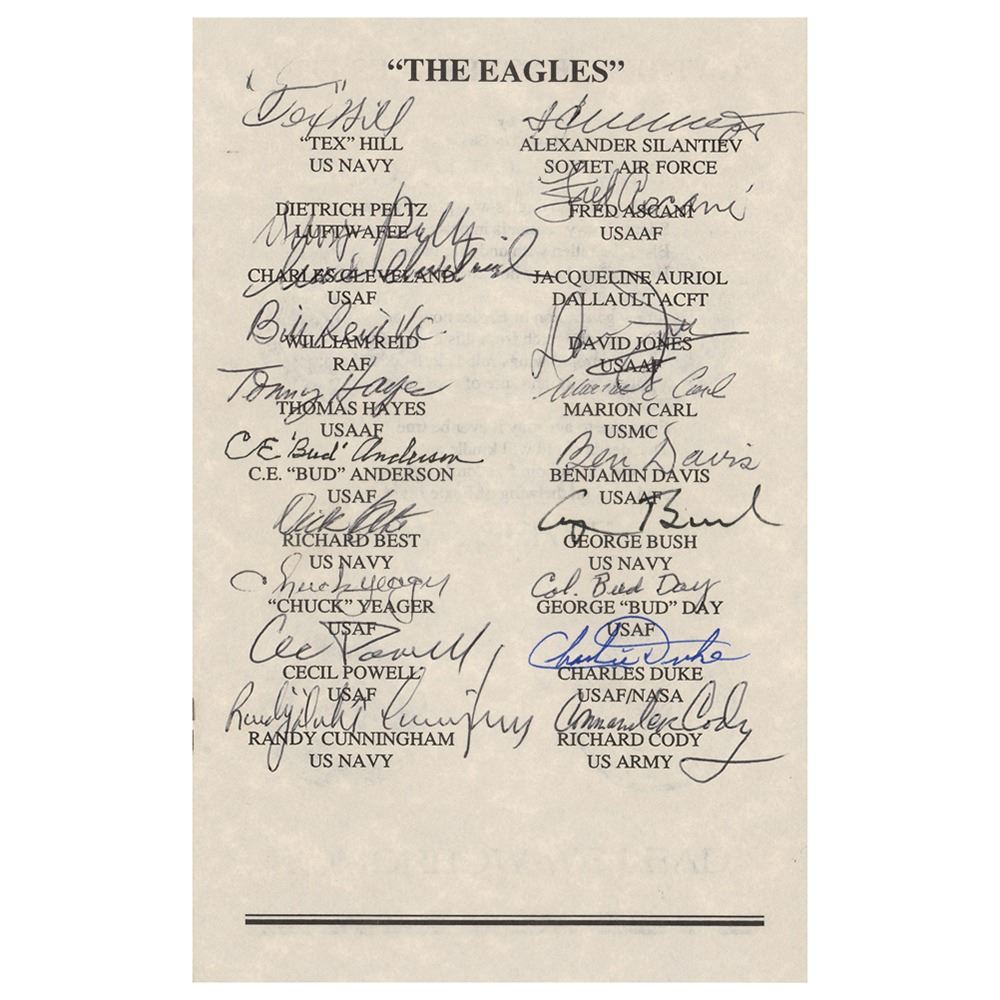 “THE EAGLES”
"Tex" Hill
“TEX” HILL
US NAVY
DIETRICH PELTZ
LUFTWAFEE
CHARLES CLEVELAND
USAF
Bill Reid VC
WILLIAM REID
RAF
Tommy Hayes
THOMAS HAYES
USAAF
C.E. "Bud" Anderson
C.E. “BUD” ANDERSON
USAF
Dick Best
RICHARD BEST
US NAVY
Chuck Yeager
“CHUCK” YEAGER
USAF
Cec Powell
CECIL POWELL
USAF
Randy "Duke" Cunningham
RANDY CUNNINGHAM
US NAVY
ALEXANDER SILANTIEV
SOVIET AIR FORCE
Fred Ascani
FRED ASCANI
USAAF
JACQUELINE AURIOL
DALLAULT ACFT
DAVID JONES
USAAF
Marion E Carl
MARION CARL
USMC
Ben Davis
BENJAMIN DAVIS
USAAF
G Bush
GEORGE BUSH
US NAVY
Col. Bud Day
GEORGE “BUD” DAY
USAF
Charlie Duke
CHARLES DUKE
USAF/NASA
Commander Cody
RICHARD CODY
US ARMY